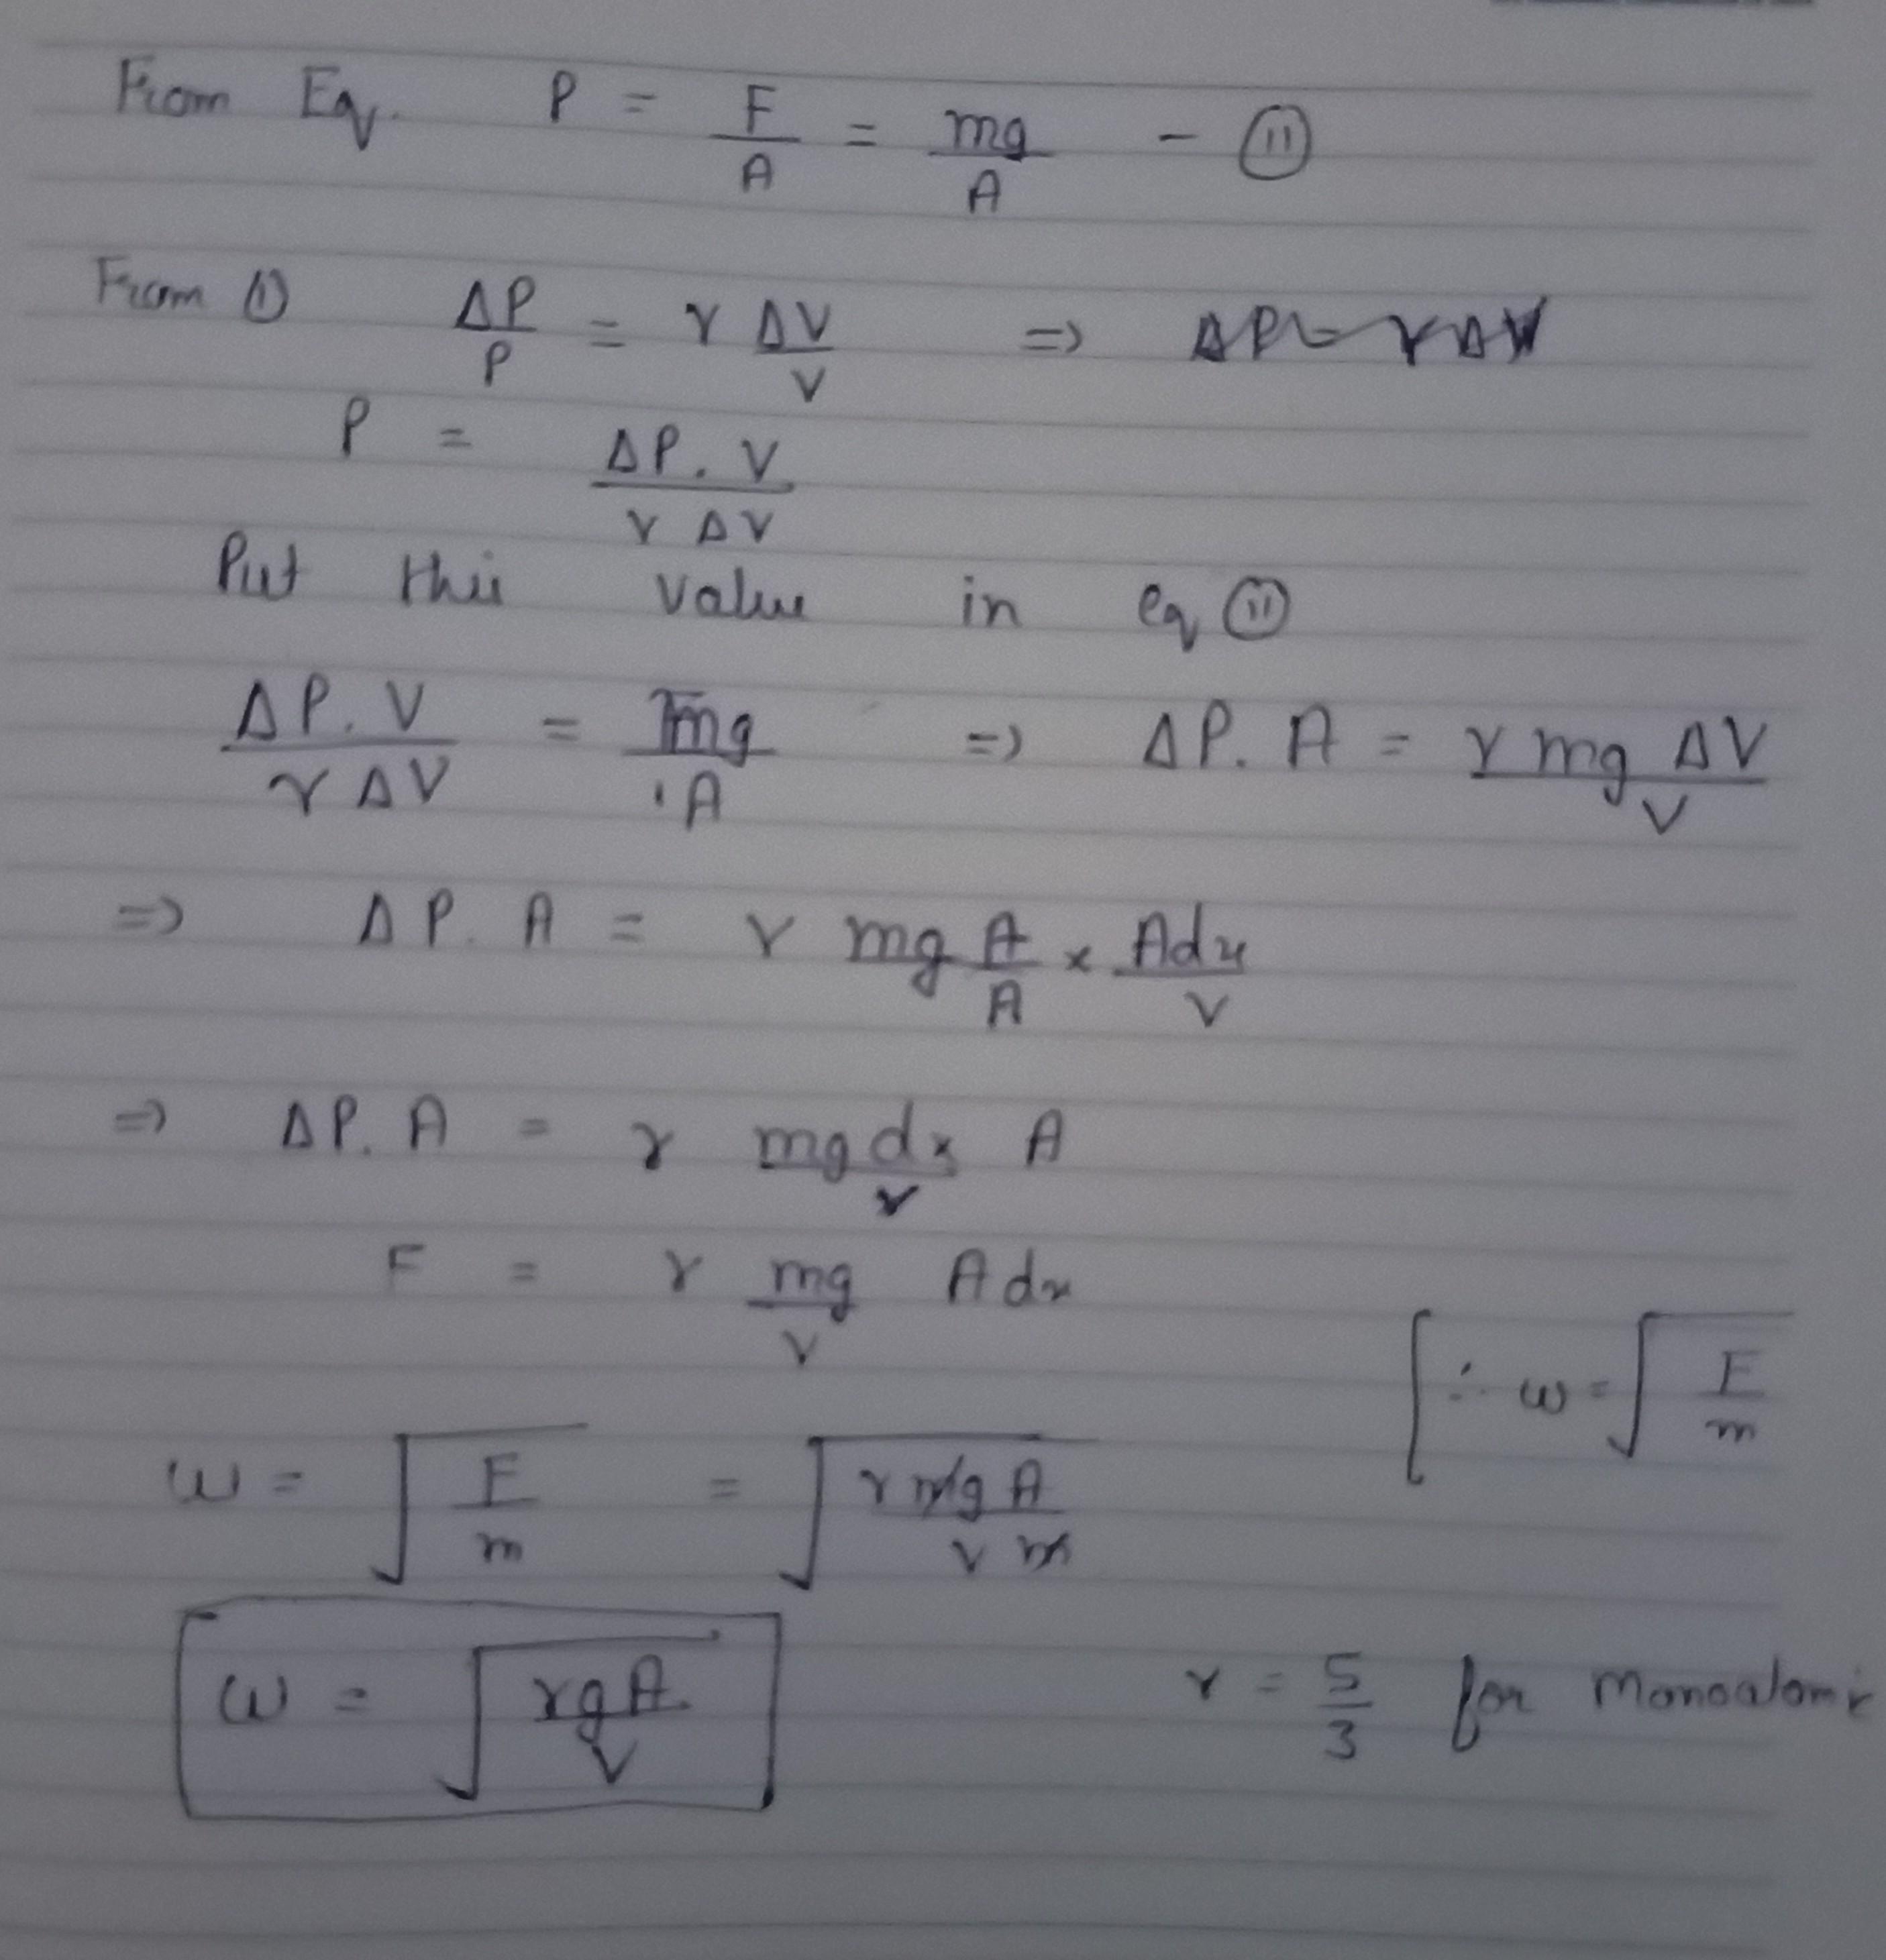 From Eq. P = F/A = mg/A - (ii)
From (i) ΔP/P = γ ΔV/V => ΔP = γΔV
P = ΔP. V / γ ΔV
Put this value in eq (ii)
ΔP. V / γ ΔV = mg/A => ΔP. A = γ mg ΔV / V
=> ΔP. A = γ mg A/A × Adx/V
=> ΔP. A = γ mg dx/V A
F = γ mg/V A dx
[∴ ω = √(F/m)
ω = √(F/m) = √(γ mg A / V m)
ω = √(γgA/V)
γ = 5/3 for Monoatomi